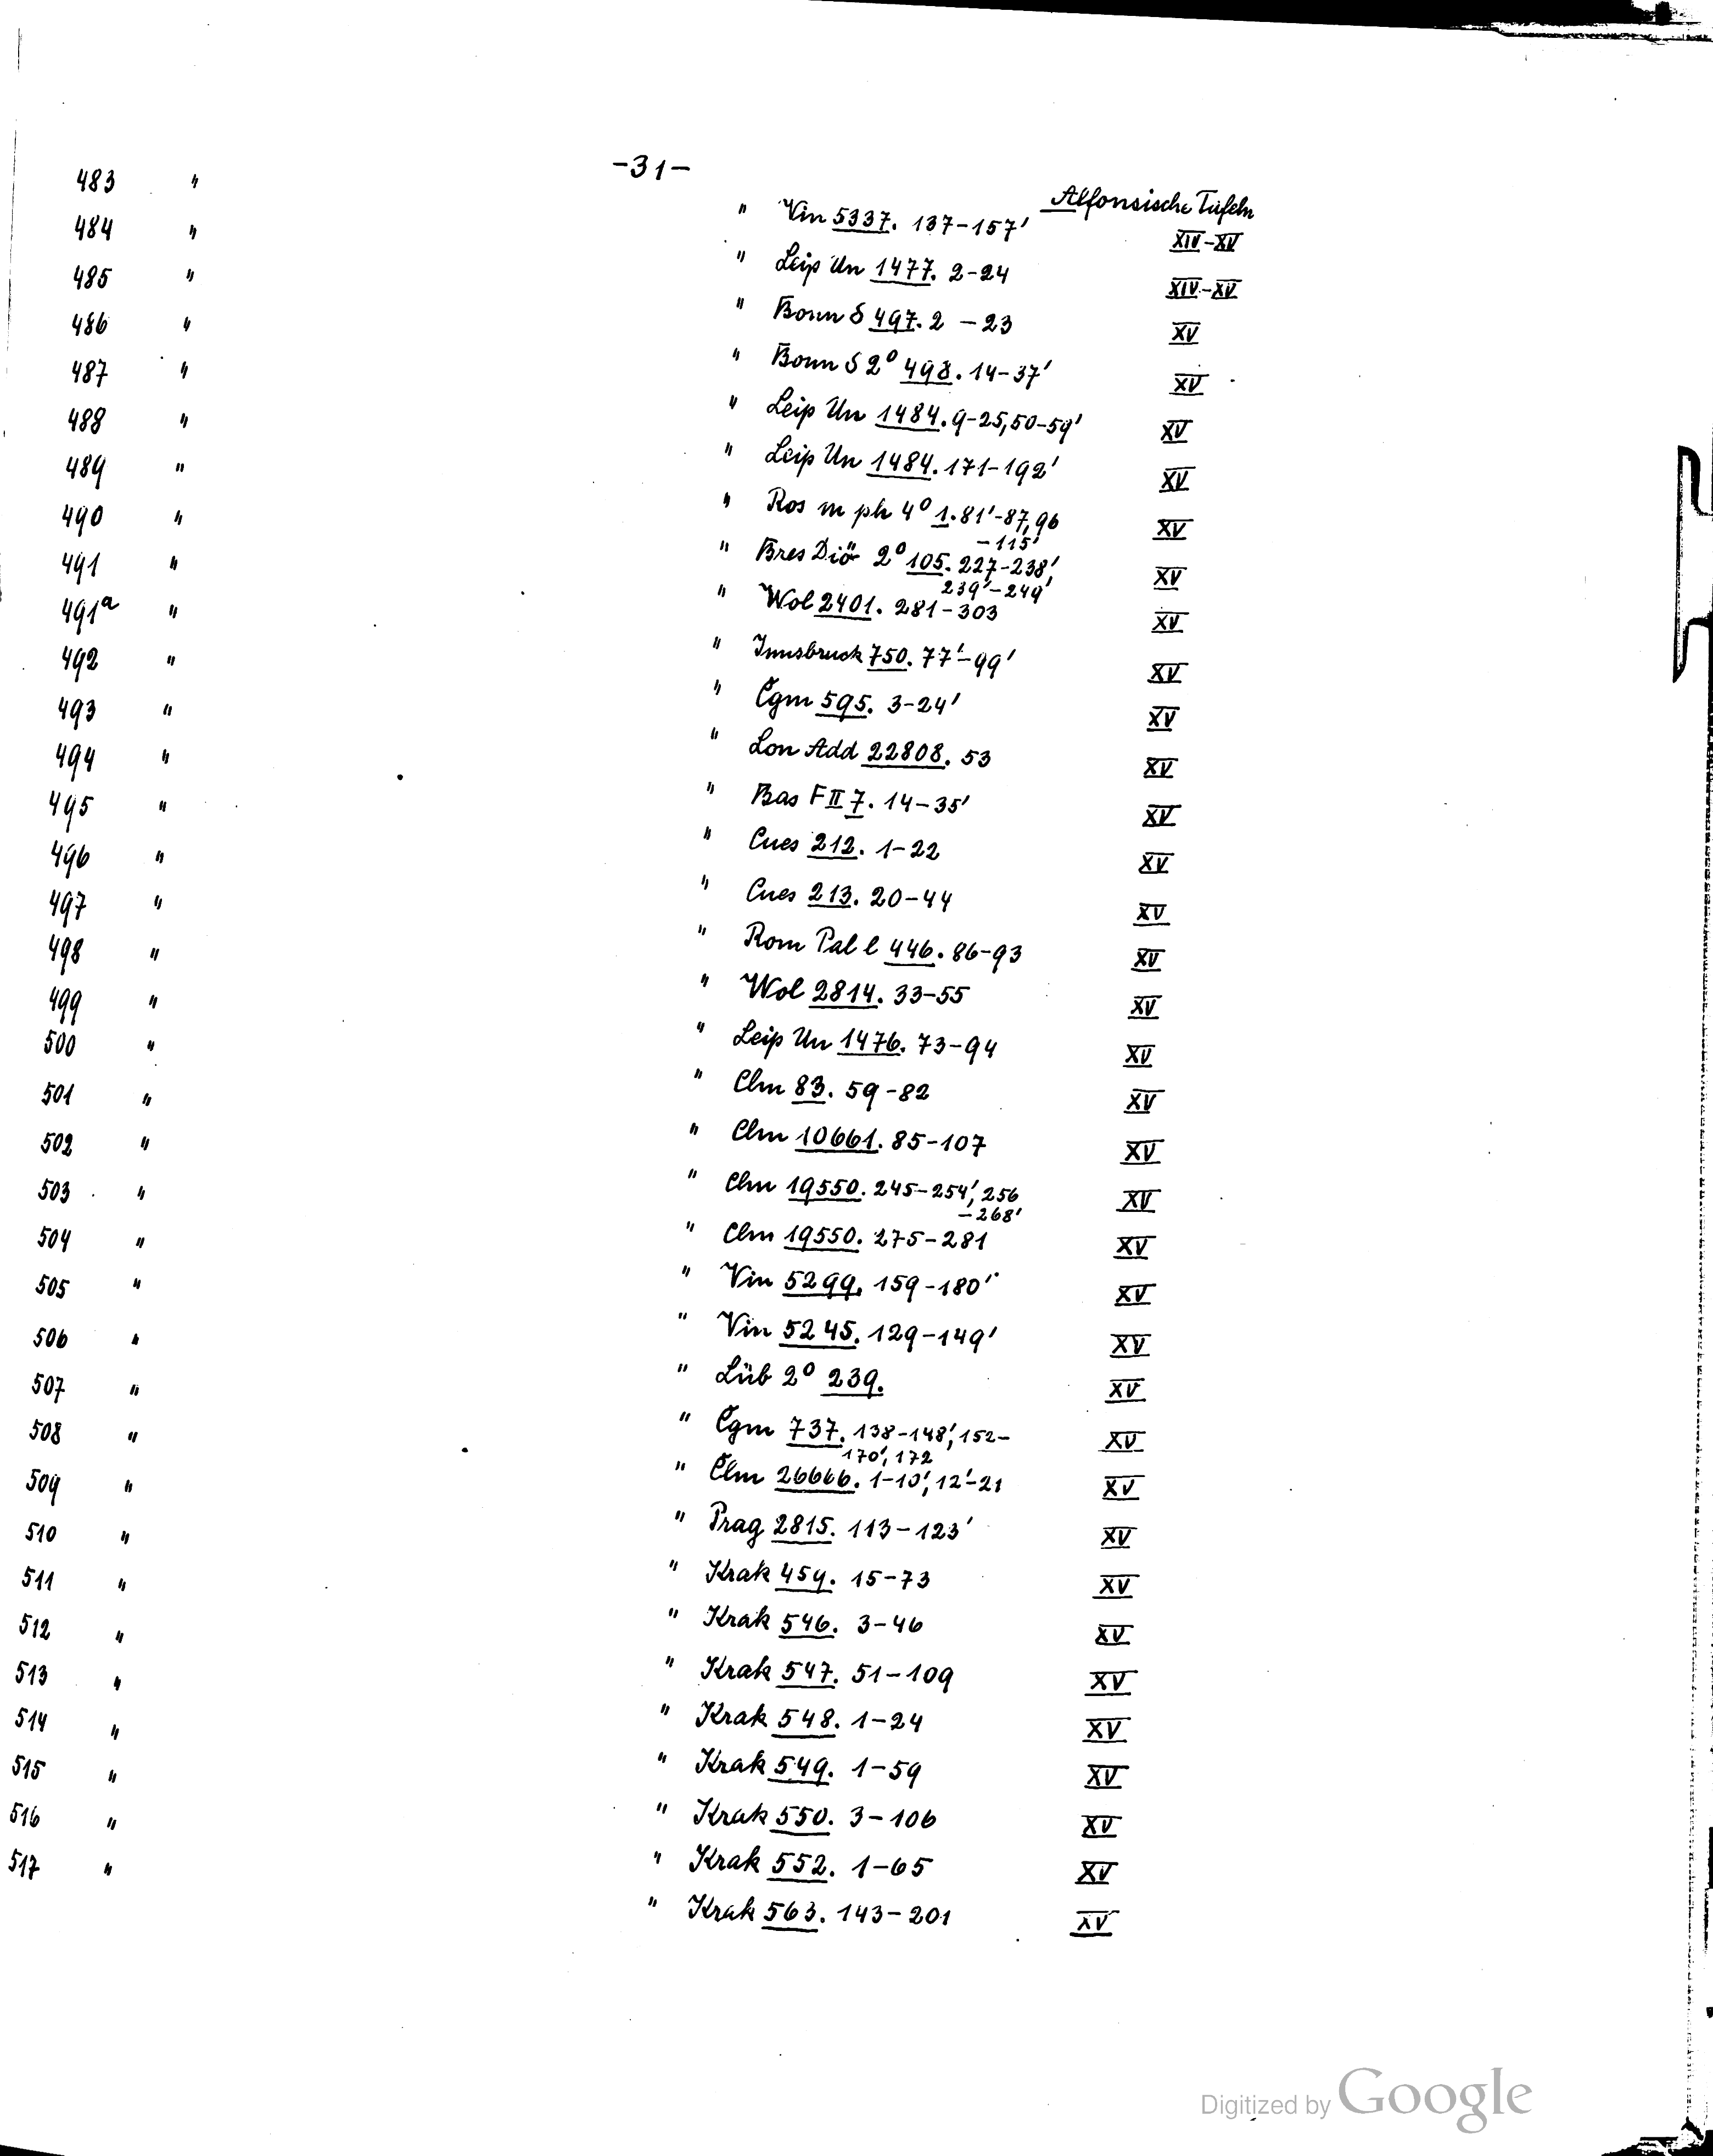 -31-
Alfonsische Tafeln
483 " " Vin 5337. 137-157' XIV-XV
484 " " Leip Un 1477. 2-24 XIV-XV
485 " " Bonn S 497. 2 -23 XV
486 " " Bonn S 2° 498. 14-37' XV
487 " " Leip Un 1484. 9-25, 50-59' XV
488 " " Leip Un 1484. 171-192' XV
489 " " Ros m ph 4° 1. 81'-87, 96 XV
-115'
490 " " Bres Diö 2° 105. 227-238' XV
239'-249'
491 " " Wol 2401. 281-303 XV
491a " " Innsbruck 750. 77'-99' XV
492 " " Cgm 595. 3-24' XV
493 " " Lon Add 22808. 53 XV
494 " " Bas F II 7. 14-35' XV
495 " " Cues 212. 1-22 XV
496 " " Cues 213. 20-44 XV
497 " " Rom Pal l 446. 86-93 XV
498 " " Wol 2814. 33-55 XV
499 " " Leip Un 1476. 73-94 XV
500 " " Clm 83. 59-82 XV
501 " " Clm 10661. 85-107 XV
502 " " Clm 19550. 245-254', 256 XV
-268'
503 " " Clm 19550. 275-281 XV
504 " " Vin 5299. 159-180' XV
505 " " Vin 5245. 129-149' XV
506 " " Lüb 2° 239. XV
507 " " Cgm 737. 138-148', 152- XV
170', 172
508 " " Clm 26666. 1-10', 12'-21 XV
509 " " Prag 2815. 113-123' XV
510 " " Krak 459. 15-73 XV
511 " " Krak 546. 3-46 XV
512 " " Krak 547. 51-109 XV
513 " " Krak 548. 1-24 XV
514 " " Krak 549. 1-59 XV
515 " " Krak 550. 3-106 XV
516 " " Krak 552. 1-65 XV
517 " " Krak 563. 143-201 XV
Digitized by Google